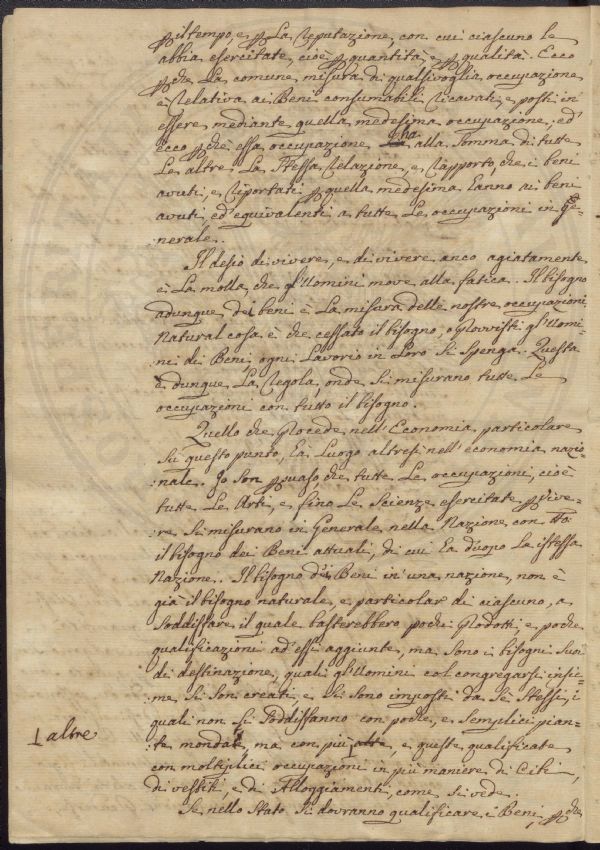 ꝑ il tempo, e ꝑ La Reputazione, con cui ciascuno le
abbia esercitate, cioè ꝑ quantità, e ꝑ qualità. Ecco
ꝑche La comune misura di qualsivoglia occupazione
è Relativa ai Beni consumabili Ricavati, e posti in
essere mediante quella medesima occupazione, ed
ecco ꝑche essa occupazione ha alla Somma di tutte
Le altre La Stessa Relazione, e Rapporto, che i beni
avuti, e Riportati ꝑ quella medesima hanno ai beni
avuti, ed equivalenti a tutte Le occupazioni in Ge-
:nerale.
Il desio di vivere, e di vivere anco agiatamente
è La molla, che gl'Uomini move alla fatica. Il bisogno
adunque dei beni è La misura delle nostre occupazioni
Natural cosa è che cessato il bisogno, o Provvisti gl'Uomi-
:ni di Beni, ogni Lavorio in Loro Si Spenga. Questa
è dunque La Regola, onde Si misurano tutte Le
occupazioni con tutto il bisogno.
Quello che Procede nell'Economia particolare
Su questo punto, ha Luogo altresì nell'economia nazio-
:nale. Io Son ꝑsuaso, che tutte Le occupazioni, cioè
tutte Le Arti, e fino Le Scienze esercitate ꝑ vive-
:re Si misurano in Generale nella Nazione con tto
il bisogno dei Beni attuali, di cui ha d'uopo La istessa
Nazione. Il bisogno dei Beni in una nazione, non è
già il bisogno naturale, e particolar di ciascuno, a
Soddisfare il quale basterebbero pochi Prodotti e poche
qualificazioni ad essi aggiunte, ma Sono i bisogni Suoi
di destinazione, quali gl'Uomini col congregarsi insie-
:me Si Son creati, e Si Sono imposti da Se Stessi, i
quali non Si Soddisfanno con poche, e Semplici pian-
altre
:te mondate, ma con più altre, e queste qualificate
con moltiplici occupazioni in più maniere di Cibi,
di vestiti, e di Alloggiamenti, come Si vede.
Se nello Stato Si dovranno qualificare i Beni, ꝑche